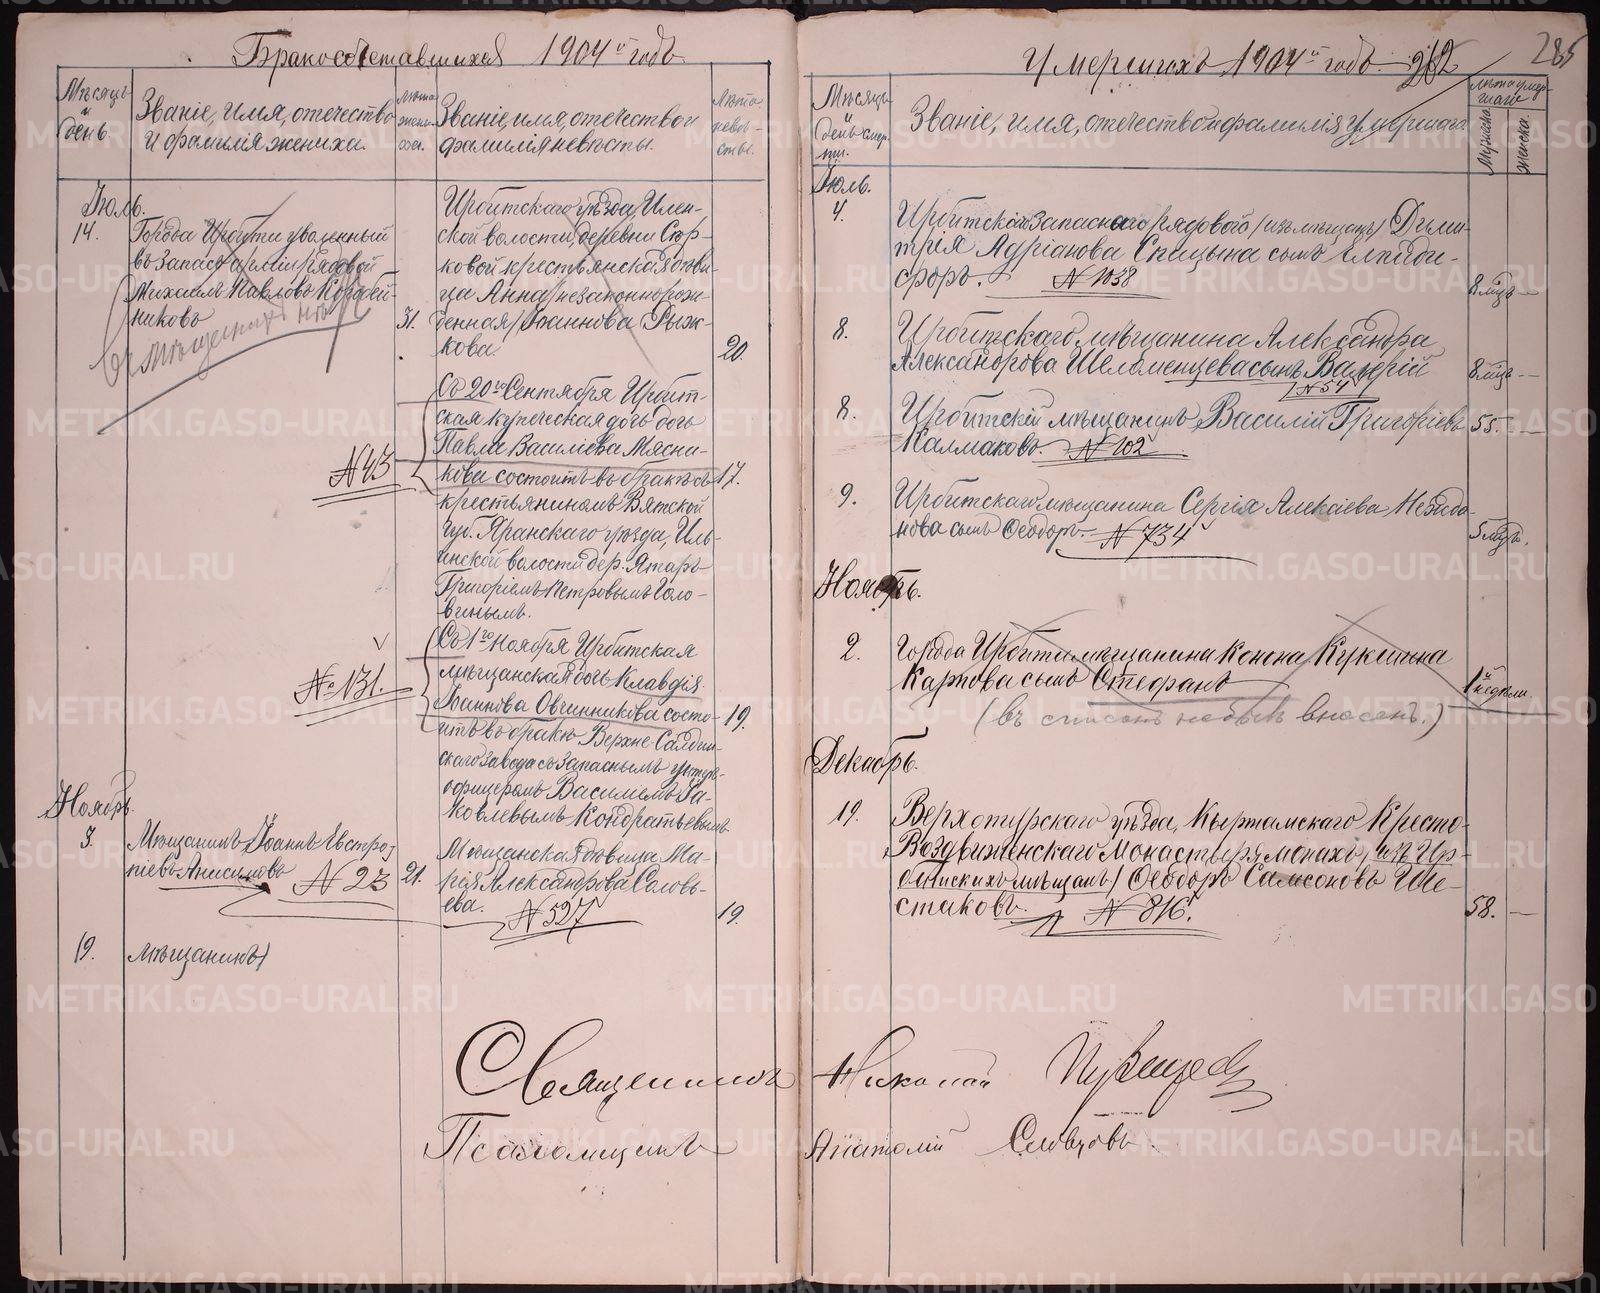 Бракосочетавшихся 1904й годъ
Мѣсяцъ
и
день.
Званіе, имя, отечество
и фамилія жениха.
Лѣта
жени-
ха.
Званіе, имя, отечество и
фамилія невѣсты.
Лѣта
невѣ-
сты.
Іюль.
14.
Города Ирбити уволенный
въ запасъ арміи рядовой
Михаилъ Павловъ Корзей-
никовъ
31.
въ мѣщанахъ нѣтъ
Ирбитскаго уѣзда, Илен-
ской волости, деревни
ковой крестьянская дѣви-
ца Анна (незаконнорож-
денная) Іоаннова Рыж-
кова.
20.
Съ 20го Сентября Ирбит-
ская купеческая дочь
Павла Василіева Мясни-
кова состоитъ въ бракѣ съ
17.
№ 43
крестьяниномъ Вятской
губ. Яранскаго уѣзда, Иль-
инской волости дер. Ятаръ
Григоріемъ Петровымъ Голо-
винымъ.
Съ 1го Ноября Ирбитская
мѣщанская дочь Клавдія
Іоаннова Овчинникова состо-
19.
№ 131.
итъ въ бракѣ Верхне-Салдин-
скаго завода съ запаснымъ унтеръ-
офицеромъ Василіемъ Я-
ковлевымъ Кондратьевымъ
Ноябрь.
7.
Мѣщанинъ Іоаннъ Евстро-
піевъ Анисимовъ № 23
21.
Мѣщанская дѣвица Ма-
рія Александрова Соловь-
ева.
№ 527
19.
19.
мѣщанинъ
Священникъ Николай
Псаломщикъ Анатолій Словцовъ.
Умершихъ 1904й годъ.
285
Мѣсяцъ
и
день смер-
ти.
Званіе, имя, отечество и фамилія умершаго.
Лѣта умер-
шаго
Мужеска.
Женска.
Іюль.
4.
Ирбитскаго запаснаго рядового (изъ мѣщанъ) Дими-
трія Адріанова Спицына сынъ Елпиди-
форъ. № 1038
8 мцъ —
8.
Ирбитскаго мѣщанина Александра
Александрова Шеломенцева сынъ Валерій
№ 54
8 мцъ —
8.
Ирбитскій мѣщанинъ Василій Григоріевъ
Калмаковъ. № 202
55. —
9.
Ирбитскаго мѣщанина Сергія Алексіева
сынъ Ѳеодоръ. № 734
5 мцъ.
Ноябрь.
2.
города Ирбити мѣщанина Конона
Карпова сынъ Стефанъ
недѣли
(въ списокъ не былъ вносенъ.)
Декабрь.
19.
Верхотурскаго уѣзда, Кыртомскаго Кресто-
Воздвиженскаго Монастыря монахъ, (изъ Ир-
битскихъ мѣщанъ) Ѳеодоръ Самсоновъ Ше-
стаковъ. № 816.
58. —
METRIKI.GASO-URAL.RU